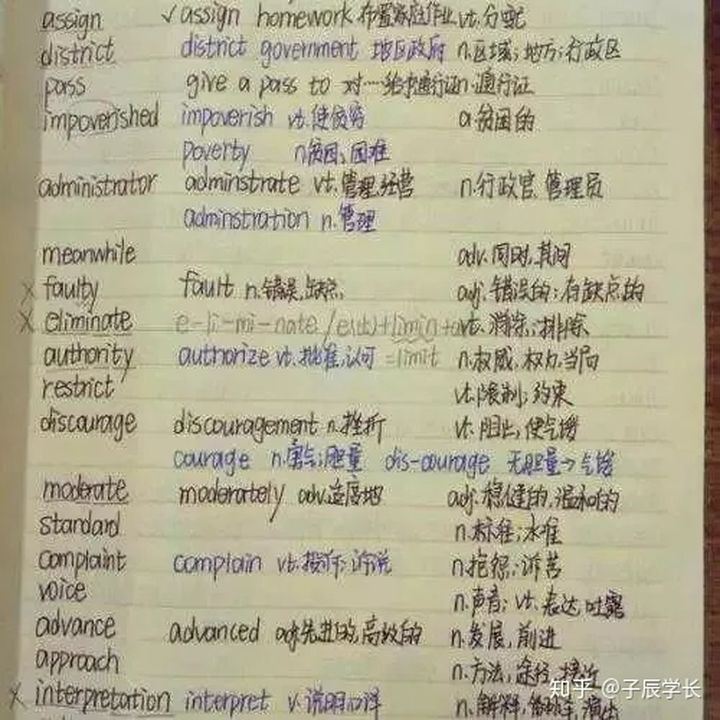 assign ✓ assign homework 布置家庭作业 vt.分配
district district government 地区政府 n.区域;地方;行政区
pass give a pass to 对…给予通行证 n.通行证
impoverished impoverish vt.使贫穷 a.贫困的
poverty n.贫困;困难
administrator adminstrate vt.管理,经营 n.行政官 管理员
adminstration n.管理
meanwhile adv.同时,其间
× faulty fault n.错误,缺点 adj.错误的;有缺点的
× eliminate e-li-mi-nate /e(出)+limin+ate vt.消除;排除
authority authorize vt.批准,认可 =limit n.权威,权力,当局
restrict vt.限制;约束
discourage discouragement n.挫折 vt.阻止,使气馁
courage n.勇气;胆量 dis-courage 无胆量→气馁
moderate moderately adv.适度地 adj.稳健的,温和的
standard n.标准;水准
complaint complain vt.投诉;诉说 n.抱怨;诉苦
voice n.声音;vt.表达,吐露
advance advanced adj.先进的,高级的 n.发展,前进
approach n.方法,途径,接近
× interpretation interpret v.说明,口译 n.解释,演出
知乎 @子辰学长